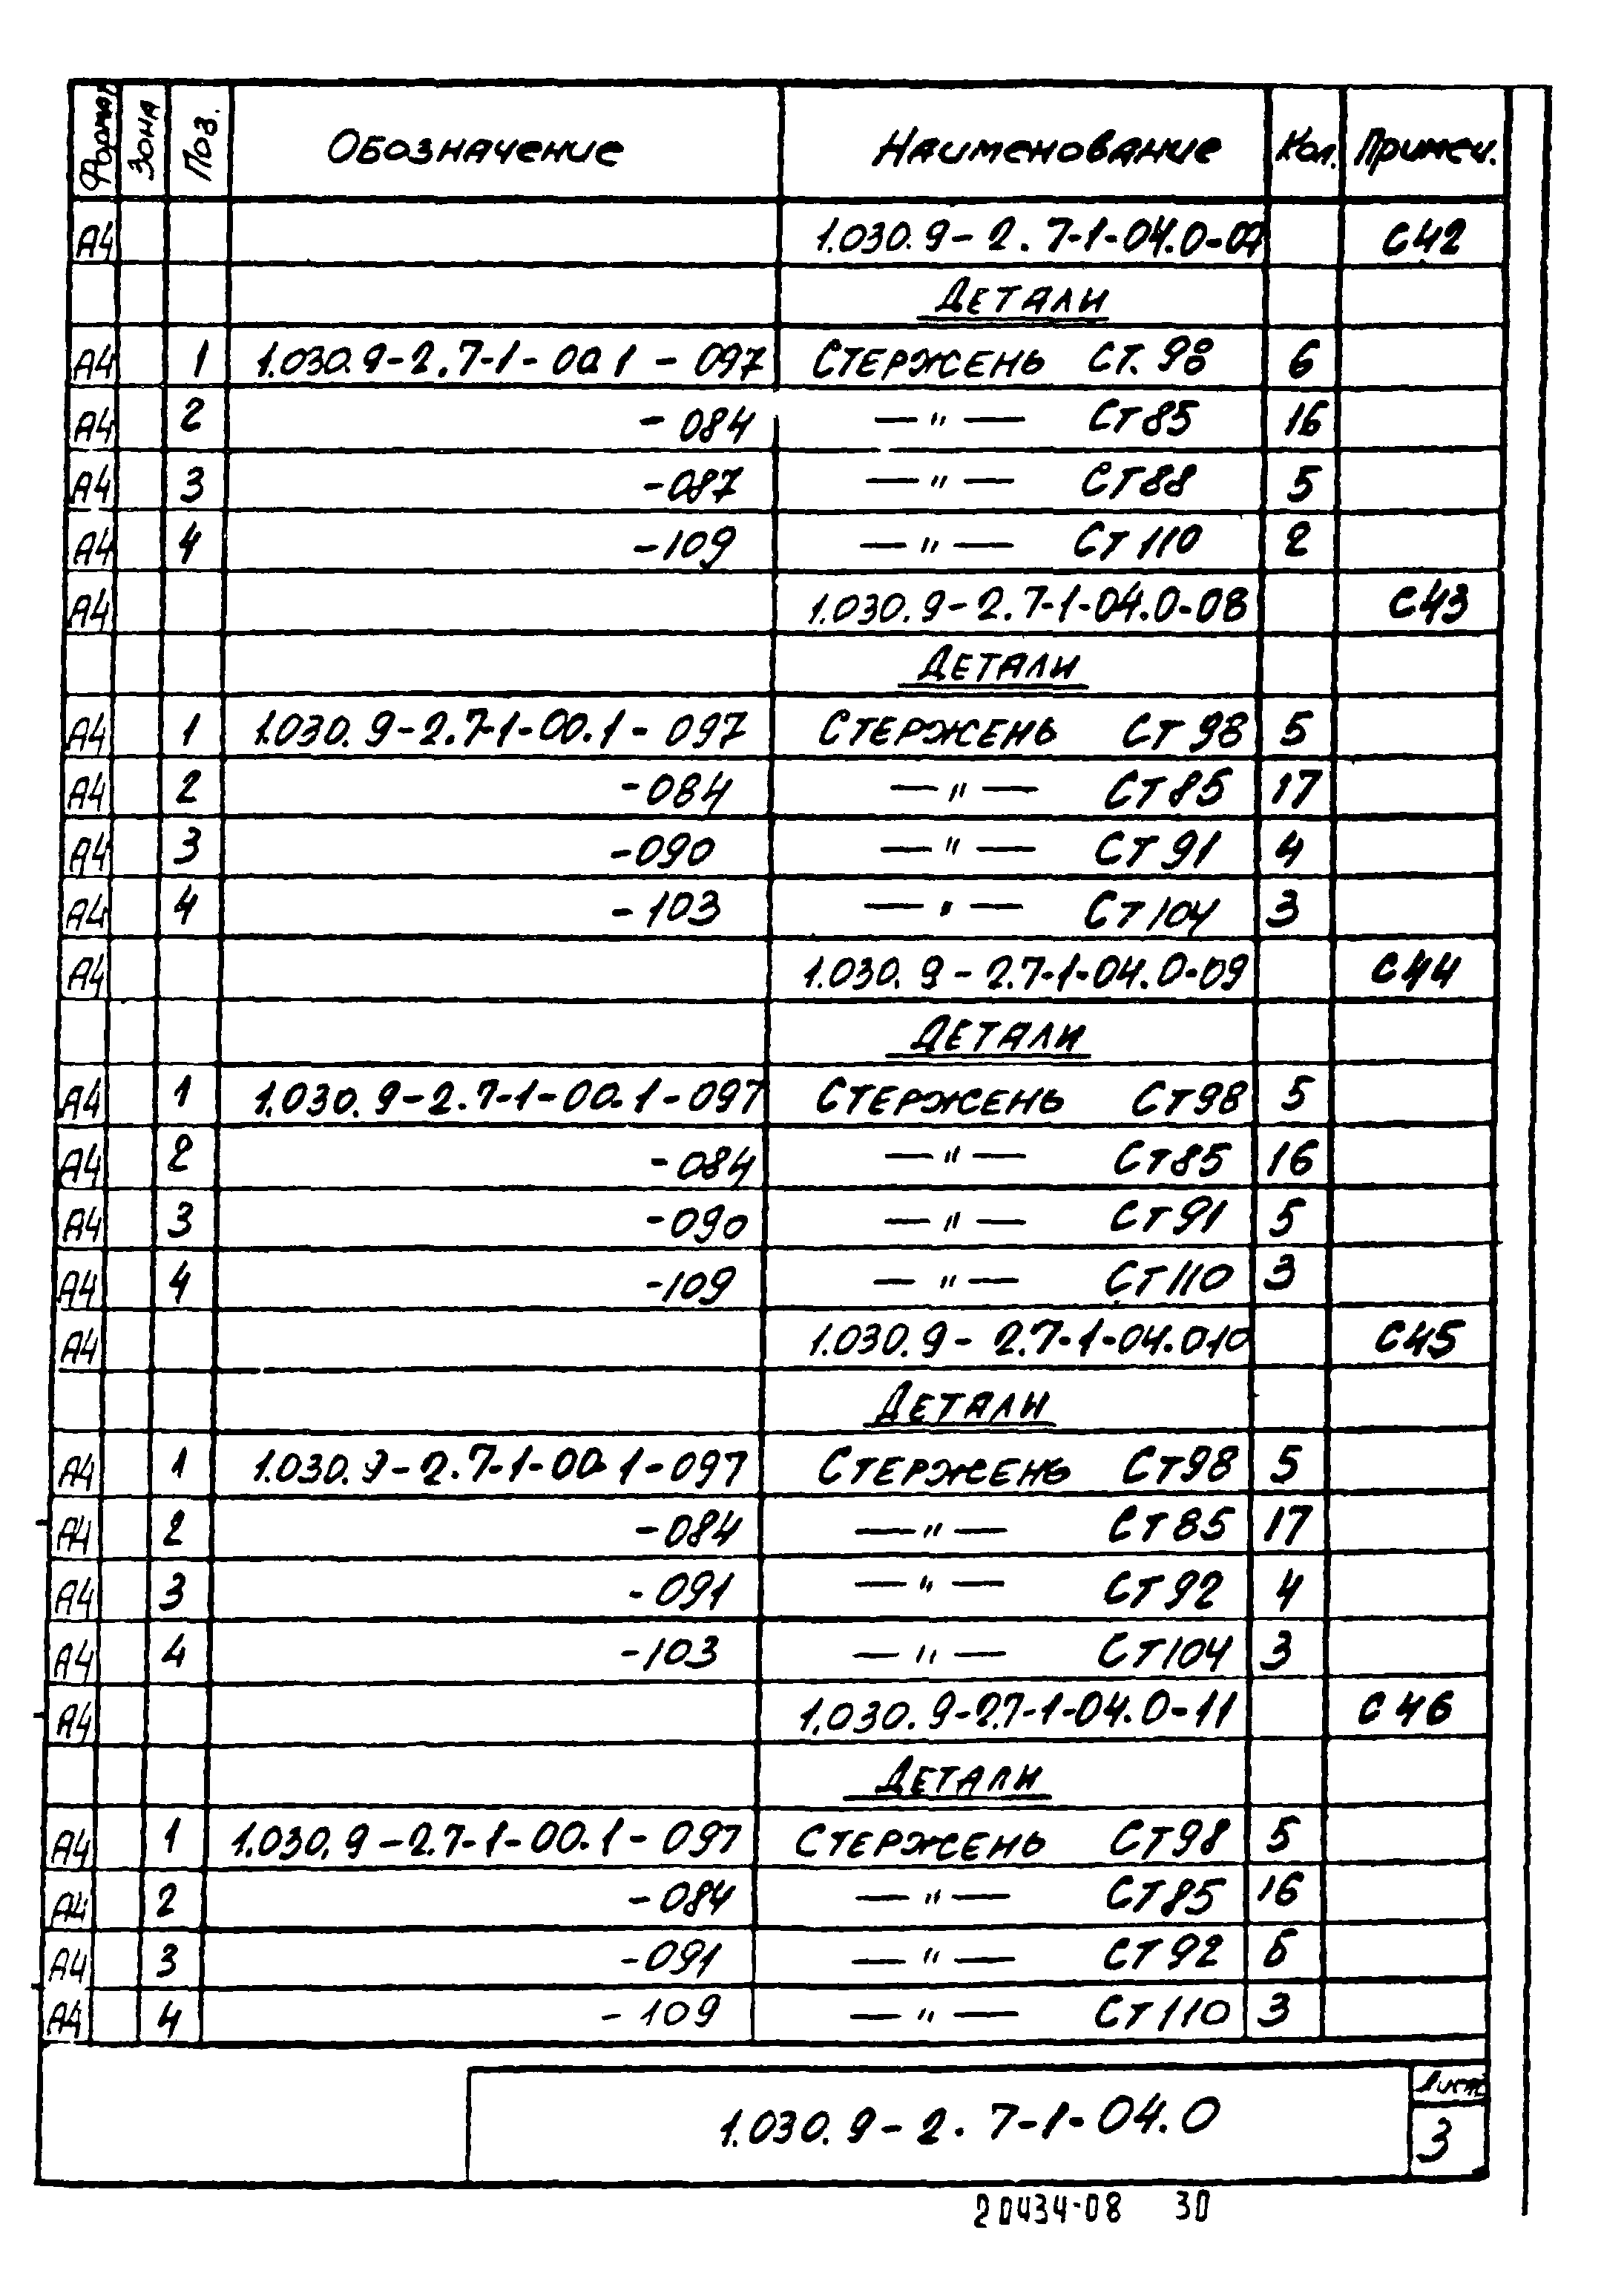 Формат Зона Поз. Обозначение Наименование Кол. Примеч.
А4 1.030.9-2.7-1-04.0-07 С42
Детали
А4 1 1.030.9-2.7-1-00.1-097 Стержень Ст.98 6
А4 2 -084 —"— Ст85 16
А4 3 -087 —"— Ст88 5
А4 4 -109 —"— Ст110 2
А4 1.030.9-2.7-1-04.0-08 С43
Детали
А4 1 1.030.9-2.7-1-00.1-097 Стержень Ст98 5
А4 2 -084 —"— Ст85 17
А4 3 -090 —"— Ст91 4
А4 4 -103 —"— Ст104 3
А4 1.030.9-2.7-1-04.0-09 С44
Детали
А4 1 1.030.9-2.7-1-00.1-097 Стержень Ст98 5
А4 2 -084 —"— Ст85 16
А4 3 -090 —"— Ст91 5
А4 4 -109 —"— Ст110 3
А4 1.030.9-2.7-1-04.010 С45
Детали
А4 1 1.030.9-2.7-1-00.1-097 Стержень Ст98 5
А4 2 -084 —"— Ст85 17
А4 3 -091 —"— Ст92 4
А4 4 -103 —"— Ст104 3
А4 1.030.9-2.7-1-04.0-11 С46
Детали
А4 1 1.030.9-2.7-1-00.1-097 Стержень Ст98 5
А4 2 -084 —"— Ст85 16
А4 3 -091 —"— Ст92 5
А4 4 -109 —"— Ст110 3
1.030.9-2.7-1-04.0 Лист
3
20434-08 30